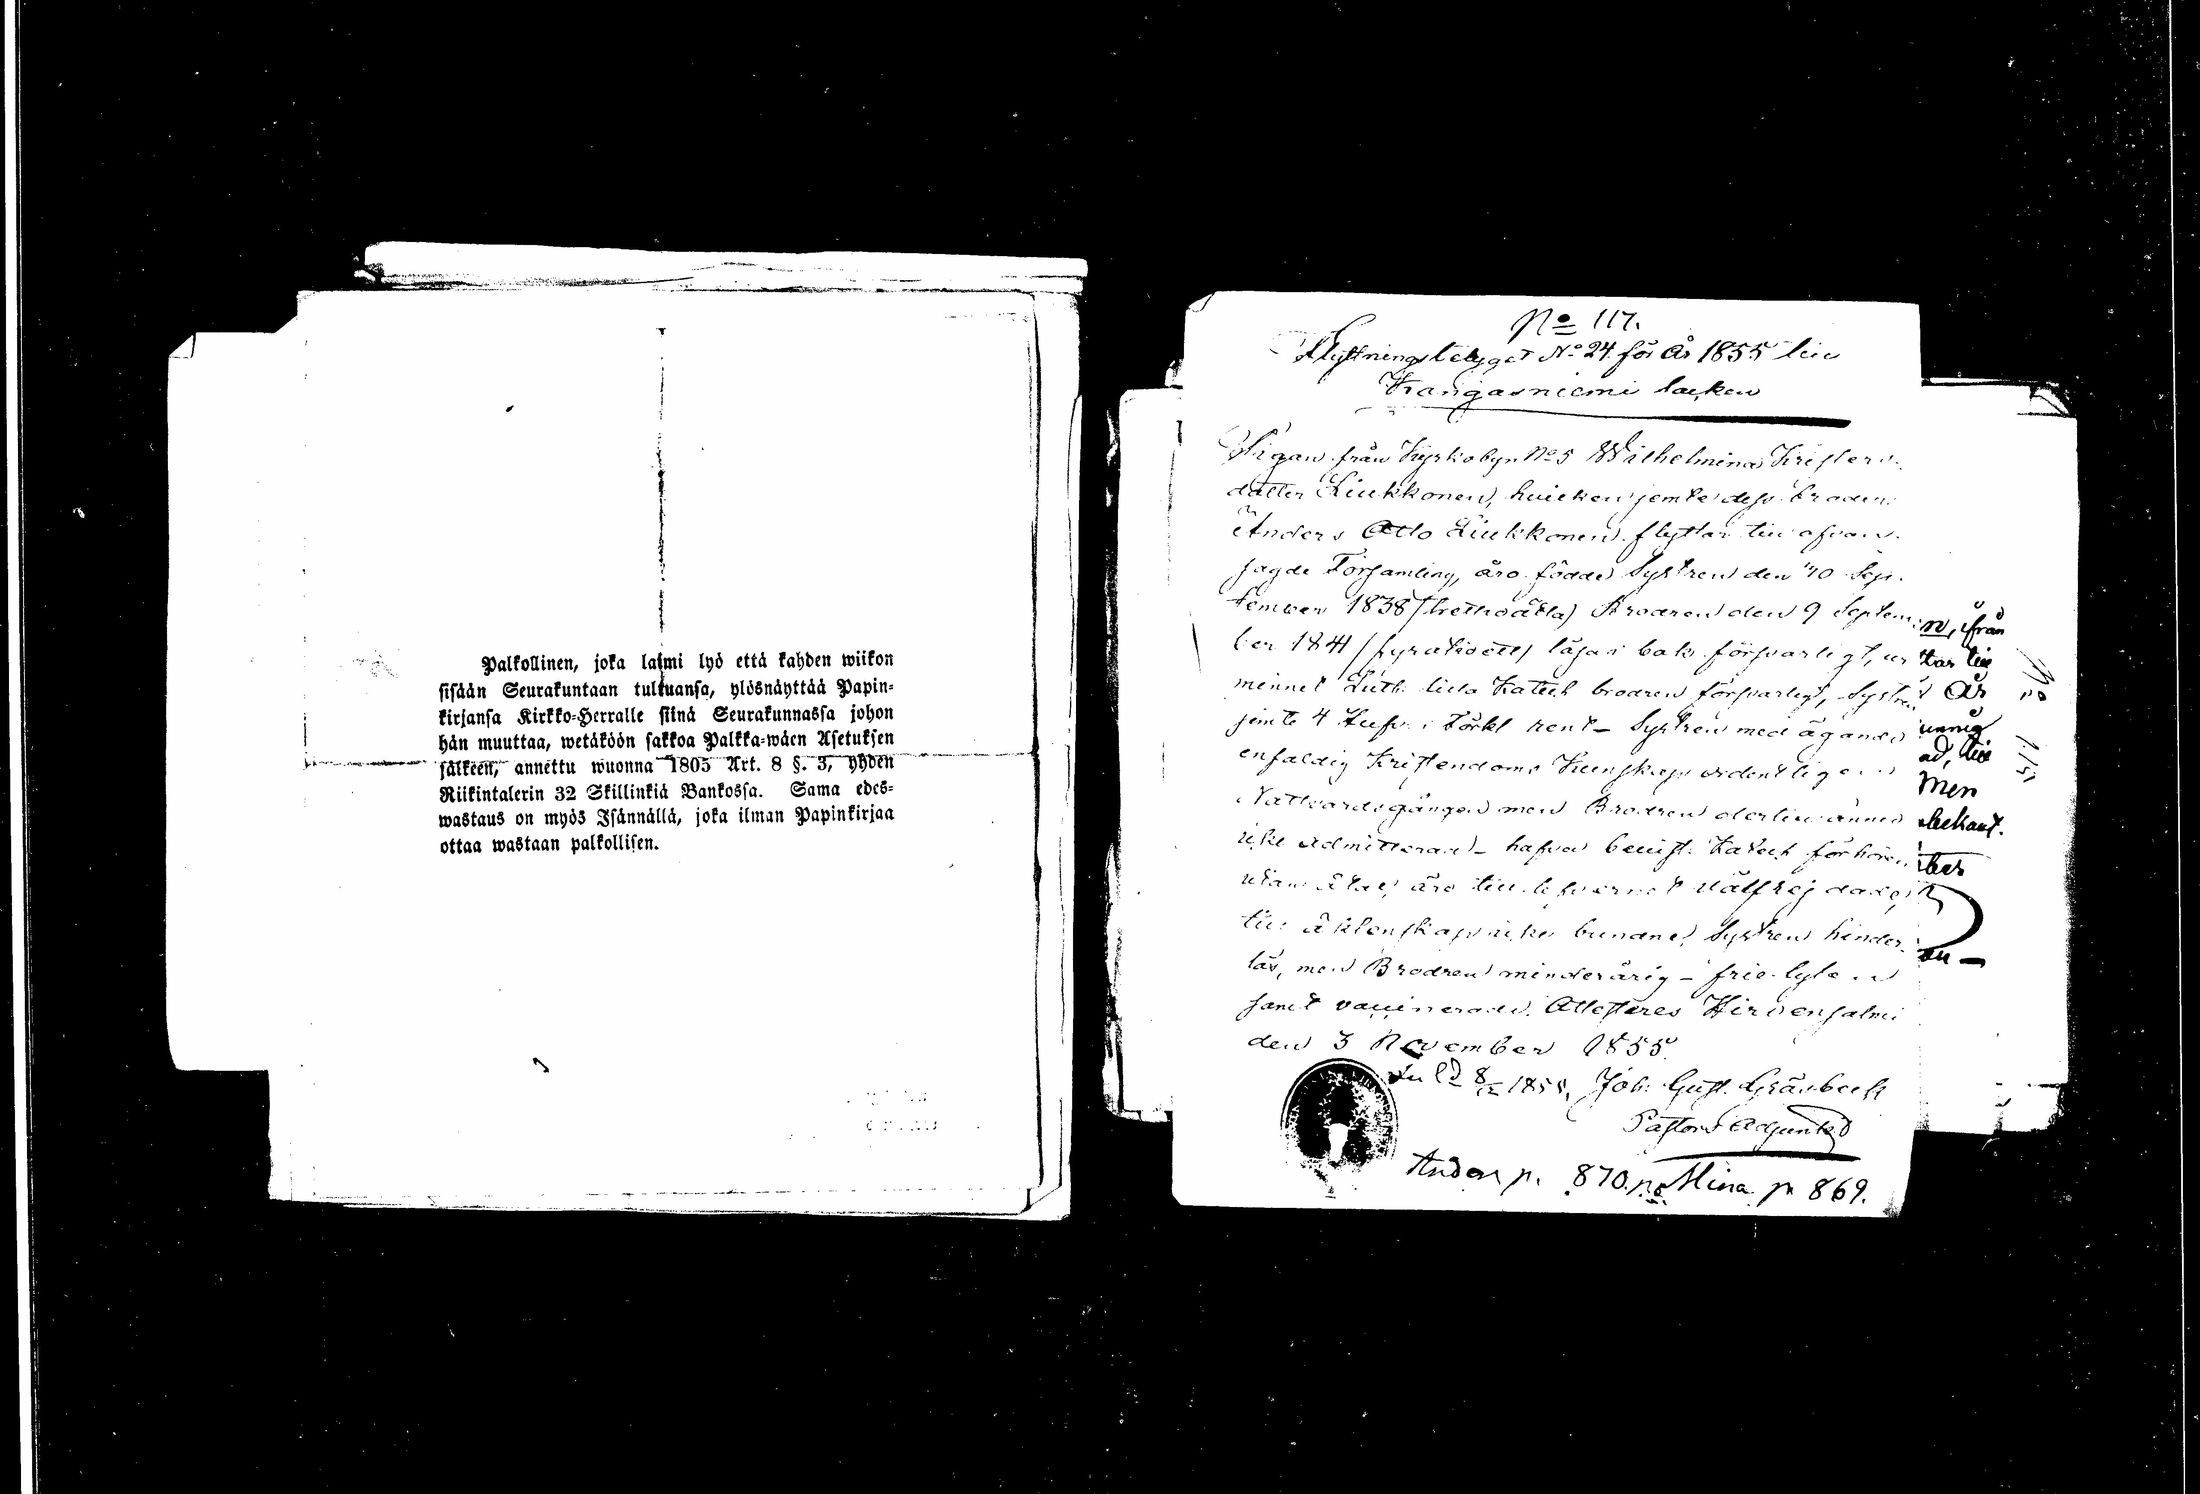 Palkollinen, joka laimi lyö että kahden wiikon
sisään Seurakuntaan tultuansa, ylösnäyttää Papin-
kirjansa Kirkko-Herralle siinä Seurakunnassa johon
hän muuttaa, wetäköön sakkoa Palkka-wäen Asetuksen
jälkeen, annettu wuonna 1805 Art. 8 §. 3, yhden
Riikintalerin 32 Skillinkiä Bankossa. Sama edes-
wastaus on myös Isännällä, joka ilman Papinkirjaa
ottaa wastaan palkollisen.
No 117.
Flyttningsbetyget No 24 för År 1855 till
Kangasniemi socken
Pigan från Kyrkobyn No 5 Wilhelmina Krister
dotter Liukkonen, hvilken jemte dess broder
Anders Otto Liukkonen flyttar till ofvan
sagde Församling, äro födde Systren den 10 Sep
tember 1838 (trettioåtta) Brodren den 9 Septem
ber 1841 (fyratioett) läsa i bok försvarligt, ur
minnet Luth: lilla Katech brodren försvarligt, Systren
jemte 4 Hufv. i Förkl rent - Systren med ägande
enfaldig Kristendoms Kunskap ordentligen
Nattvardsgången men Brodren dertill ännu
icke admitterad - hafva bevist. Katech förhören
utan åtal, äro till lefvernet välfrejdade,
till äktenskap icke bundne, Systren hinder
lös, men Brodren minderårig - frie lyte
samt vaccinerade. Attesteres Hirvensalmi
den 3 November 1855.
Joh: Gust. Gråsbeck
Pastors Adjunkt
Anders p. 870. Mina p 869.
ifrån
tar till
År
Men
bekant.